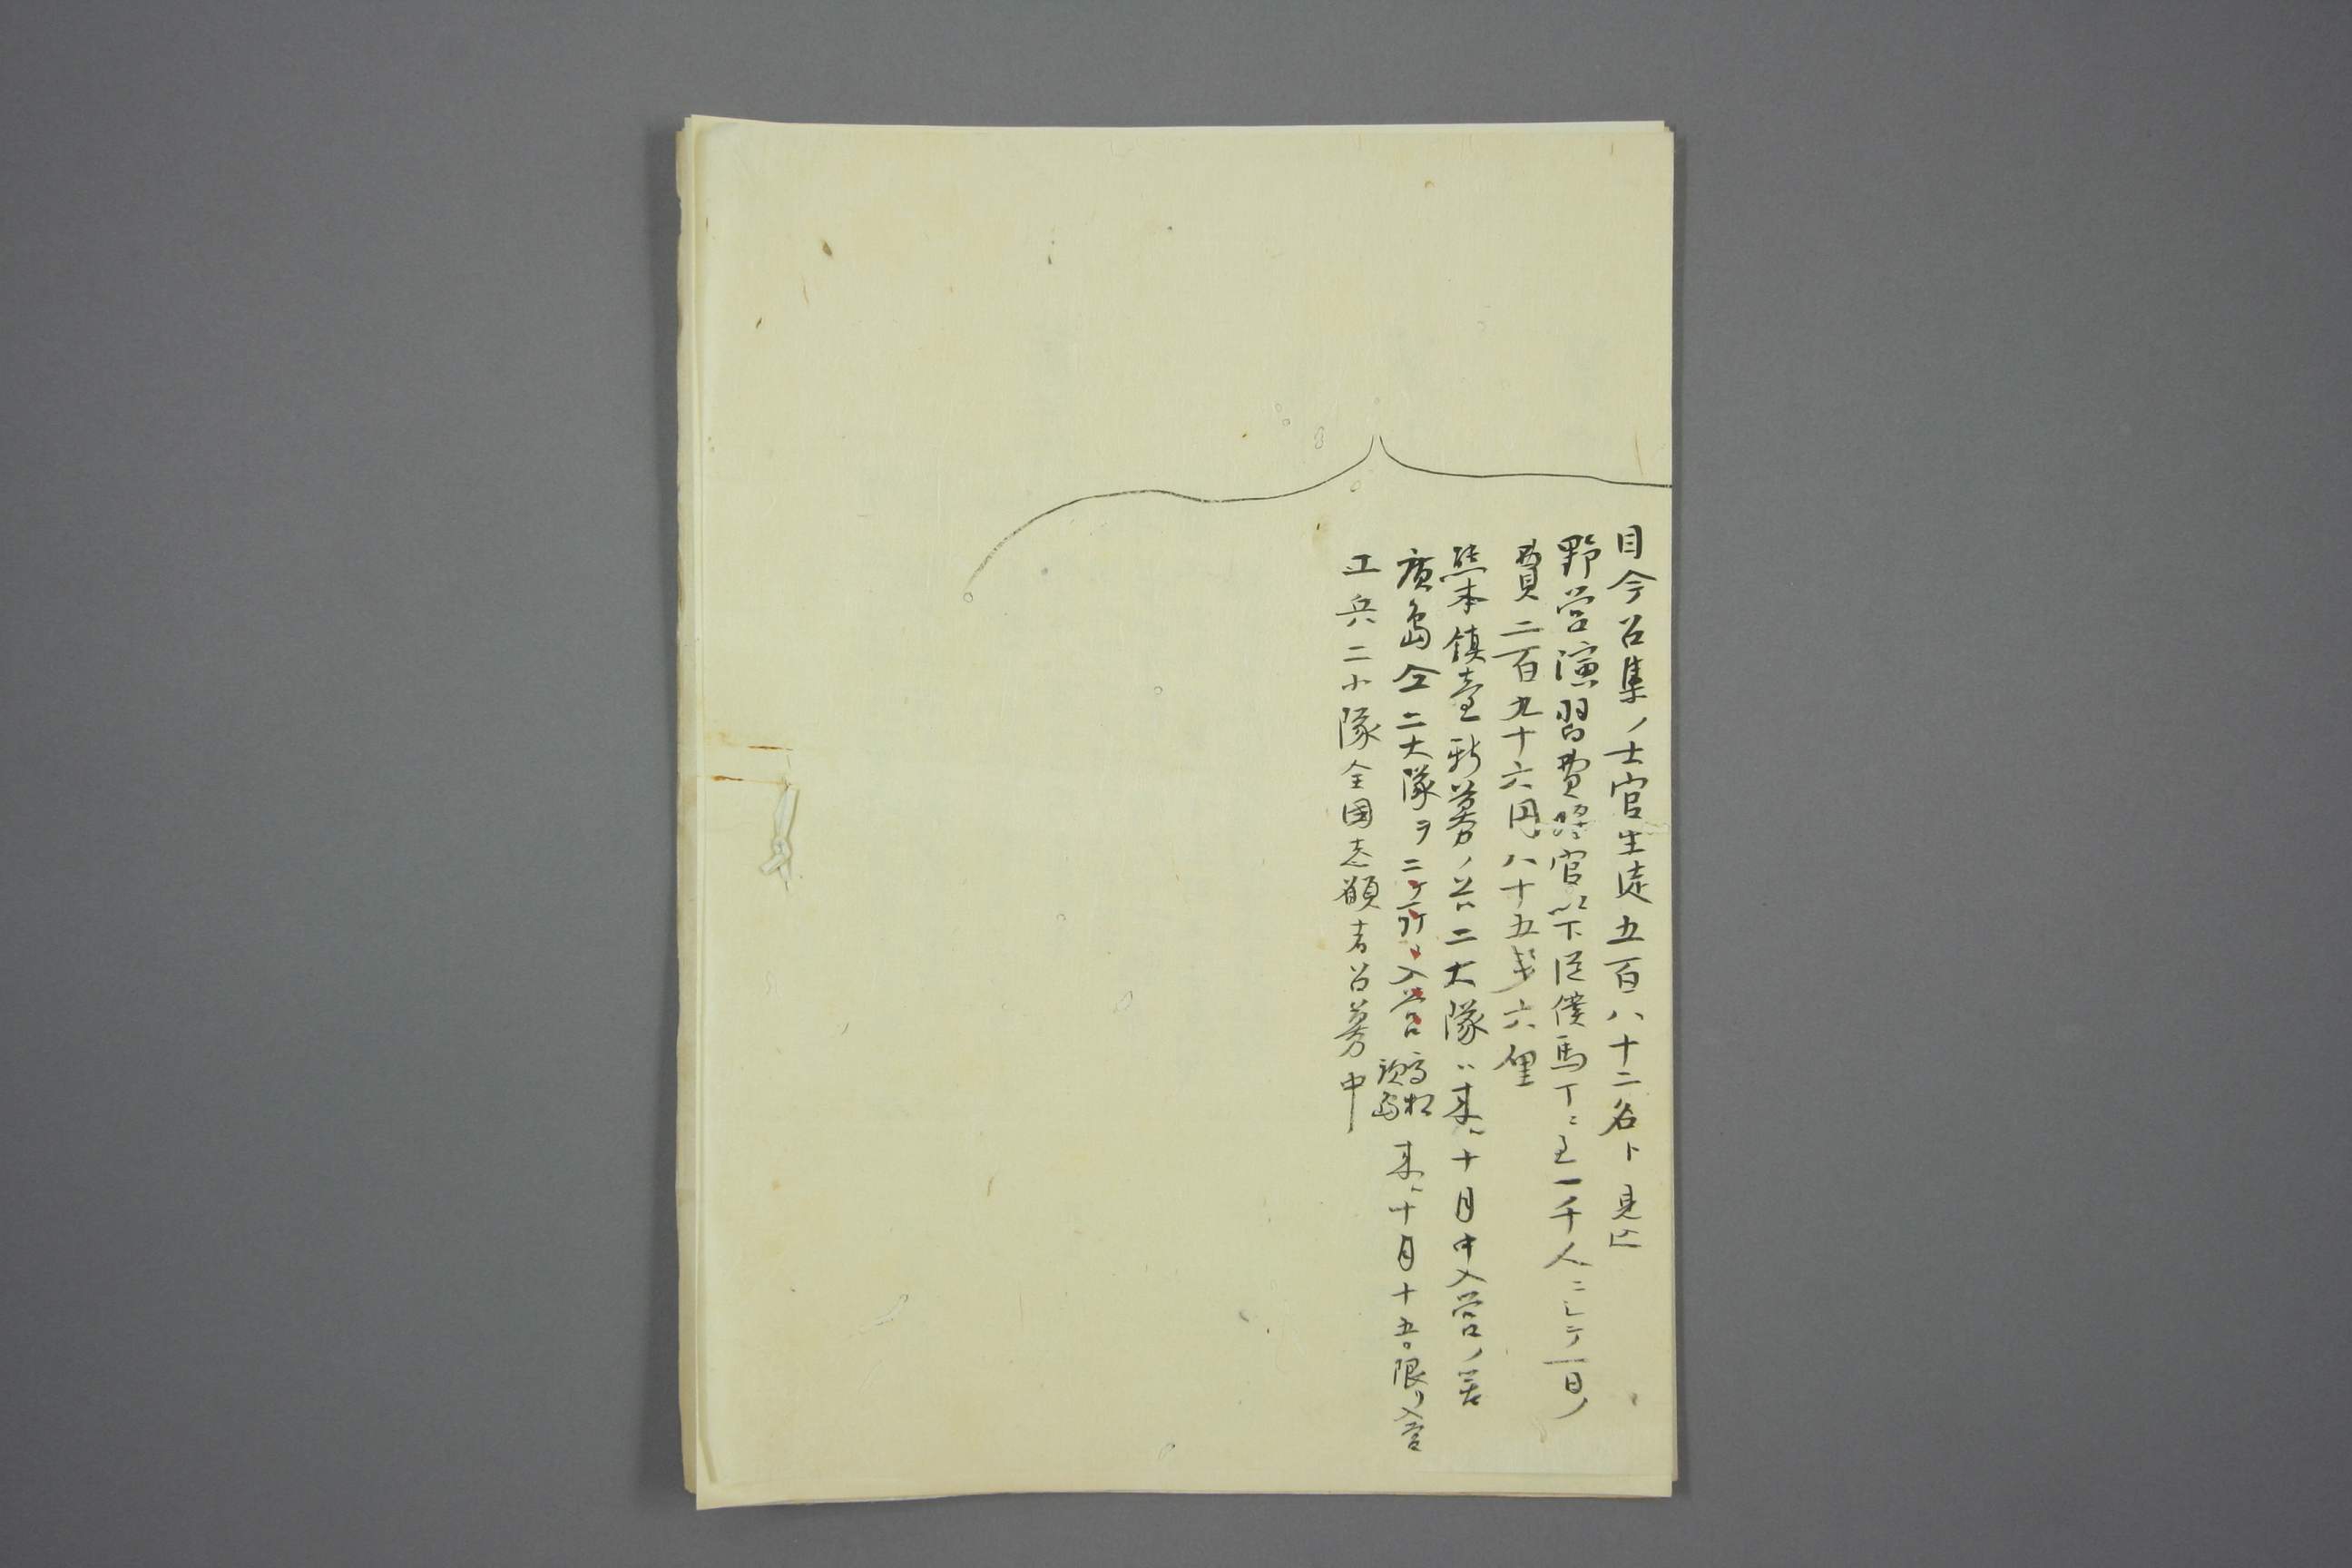 目今召集ノ士官生徒五百八十二名ト見込
野営演習費将官以下従僕馬丁ニ至一千人ニシテ一日ノ
費二百九十六円八十五銭六厘
熊本鎮臺新募ノ兵二大隊ハ来ル十月中入営ノ筈
廣島仝二大隊ヲ二ケ所ニ入営高松廣島来ル十月十五日限リ入営
工兵二小隊全国志願者召募中